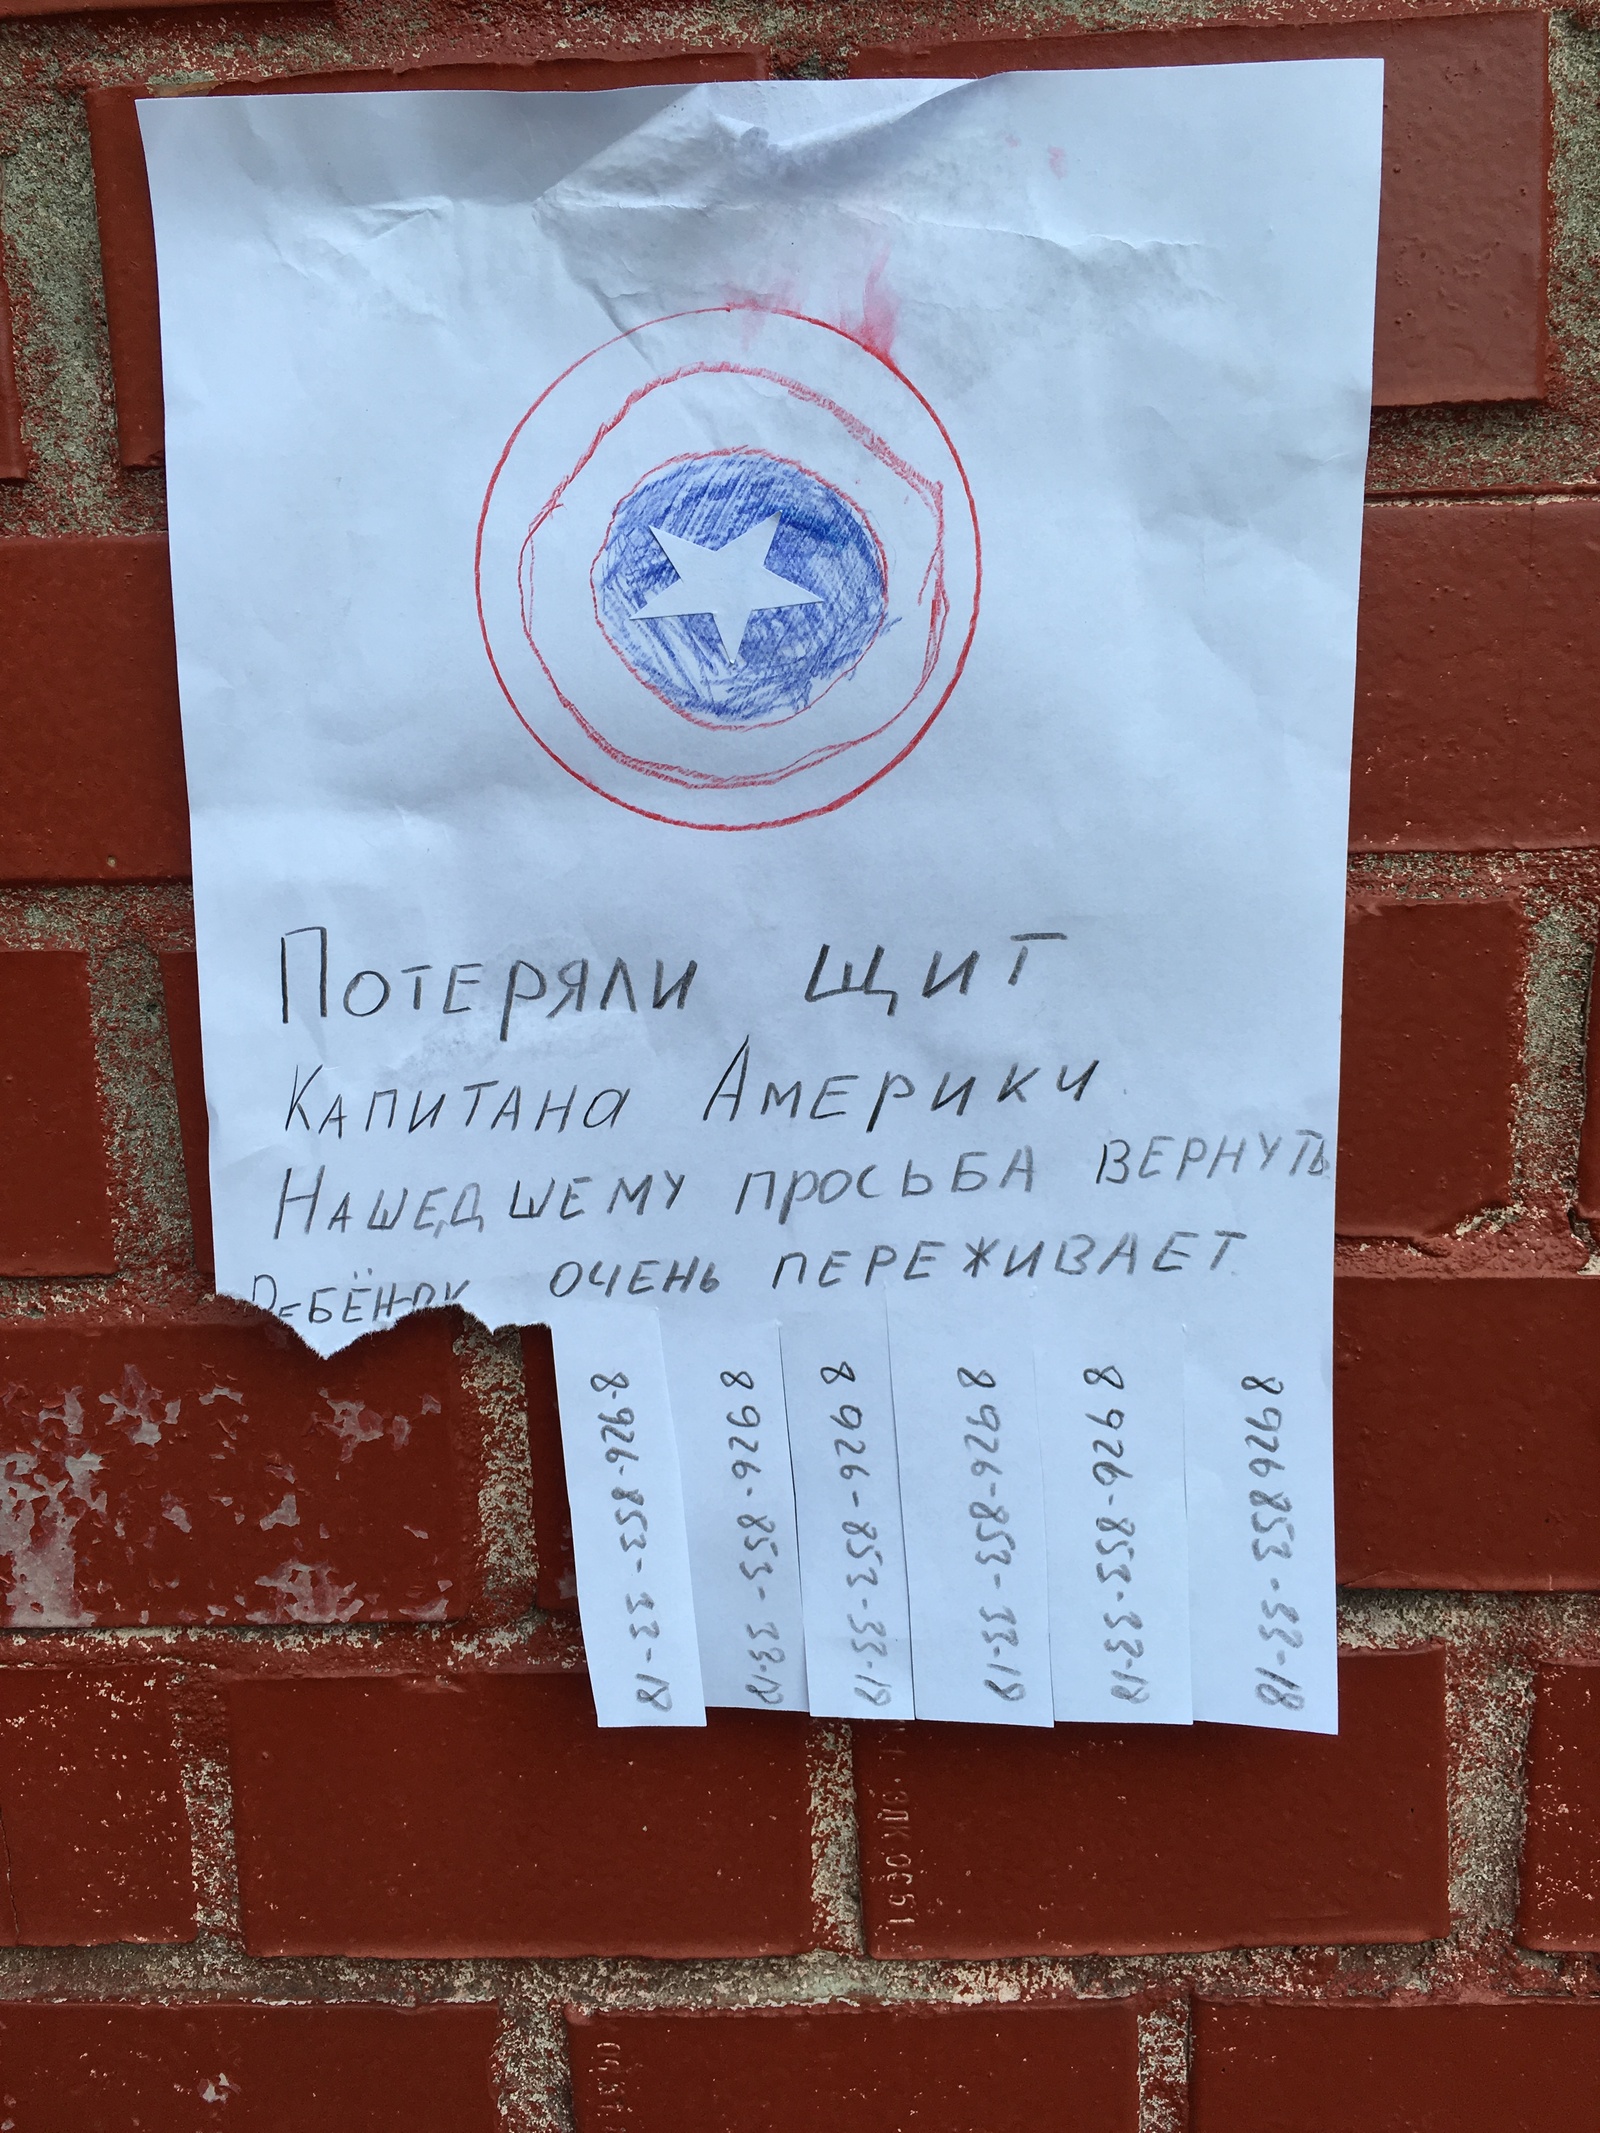 Потеряли щит
Капитана Америки
Нашедшему просьба вернуть
Ребёнок очень переживает.
8-926-853-33-18
8 926-853-33-18
8 926-853-33-18
8 926-853-33-18
8 926-853-33-18
8926853-33-18